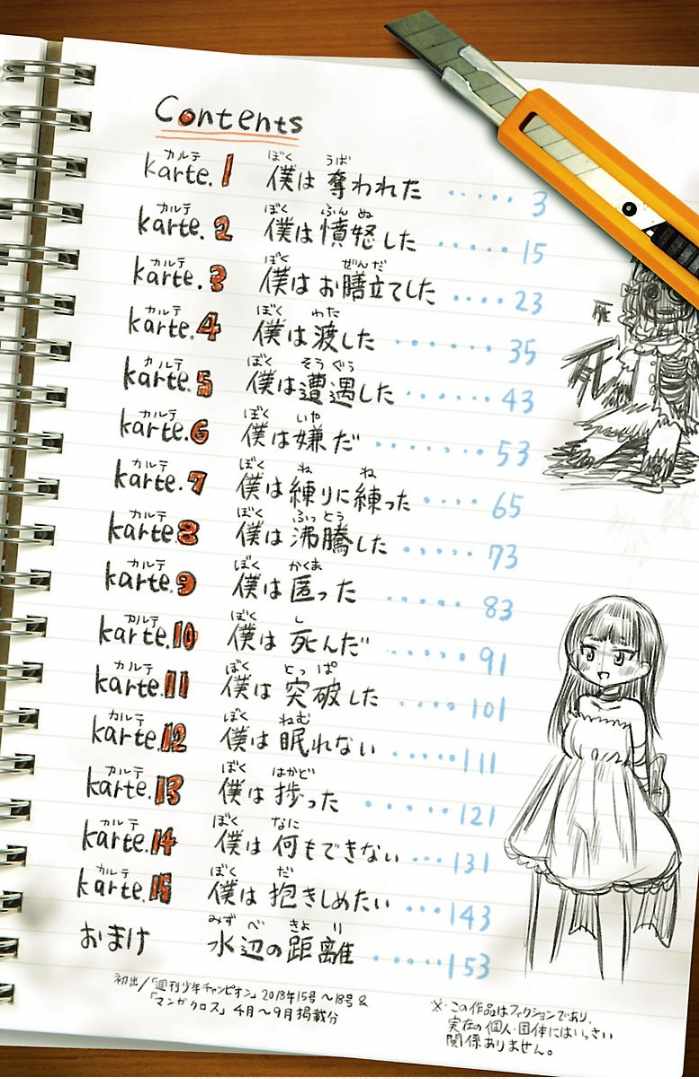 Contents
karte.1 僕は奪われた ····· 3
karte.2 僕は憤怒した ······ 15
karte.3 僕はお膳立てした ···· 23
karte.4 僕は渡した ······ 35
karte.5 僕は遭遇した ····· 43
karte.6 僕は嫌だ ······· 53
karte.7 僕は練りに練った ···· 65
karte.8 僕は沸騰した ····· 73
karte.9 僕は匿った ····· 83
karte.10 僕は死んだ ····· 91
karte.11 僕は突破した ···· 101
karte.12 僕は眠れない ····· 111
karte.13 僕は捗った ····· 121
karte.14 僕は何もできない ··· 131
karte.15 僕は抱きしめたい ··· 143
おまけ 水辺の距離 ····· 153
初出/「週刊少年チャンピオン」2018年15号〜18号&
「マンガクロス」4月〜9月掲載分
※この作品はフィクションであり、
実在の個人・団体にはいっさい
関係ありません。